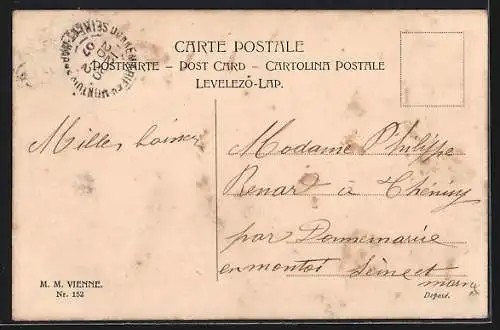 CARTE POSTALE
POSTKARTE – POST CARD – CARTOLINA POSTALE
LEVELEZŐ-LAP.
DONNEMARIE EN MONTOIS
Milles
Madame Philippe
Renard à Thénisy
par Donnemarie
en montois Seine et
marne
M. M. VIENNE.
Nr. 152
Deposé.